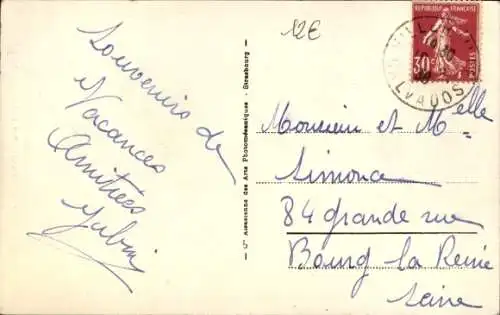 12E
Souvenirs de
Vacances
Amitiés
Cie Alsacienne des Arts Photomécaniques - Strasbourg
REPUBLIQUE FRANCAISE
30c
POSTES
VILL
LVADOS
Monsieur et Melle
Simonca
84 grande rue
Bourg la Reine
Seine